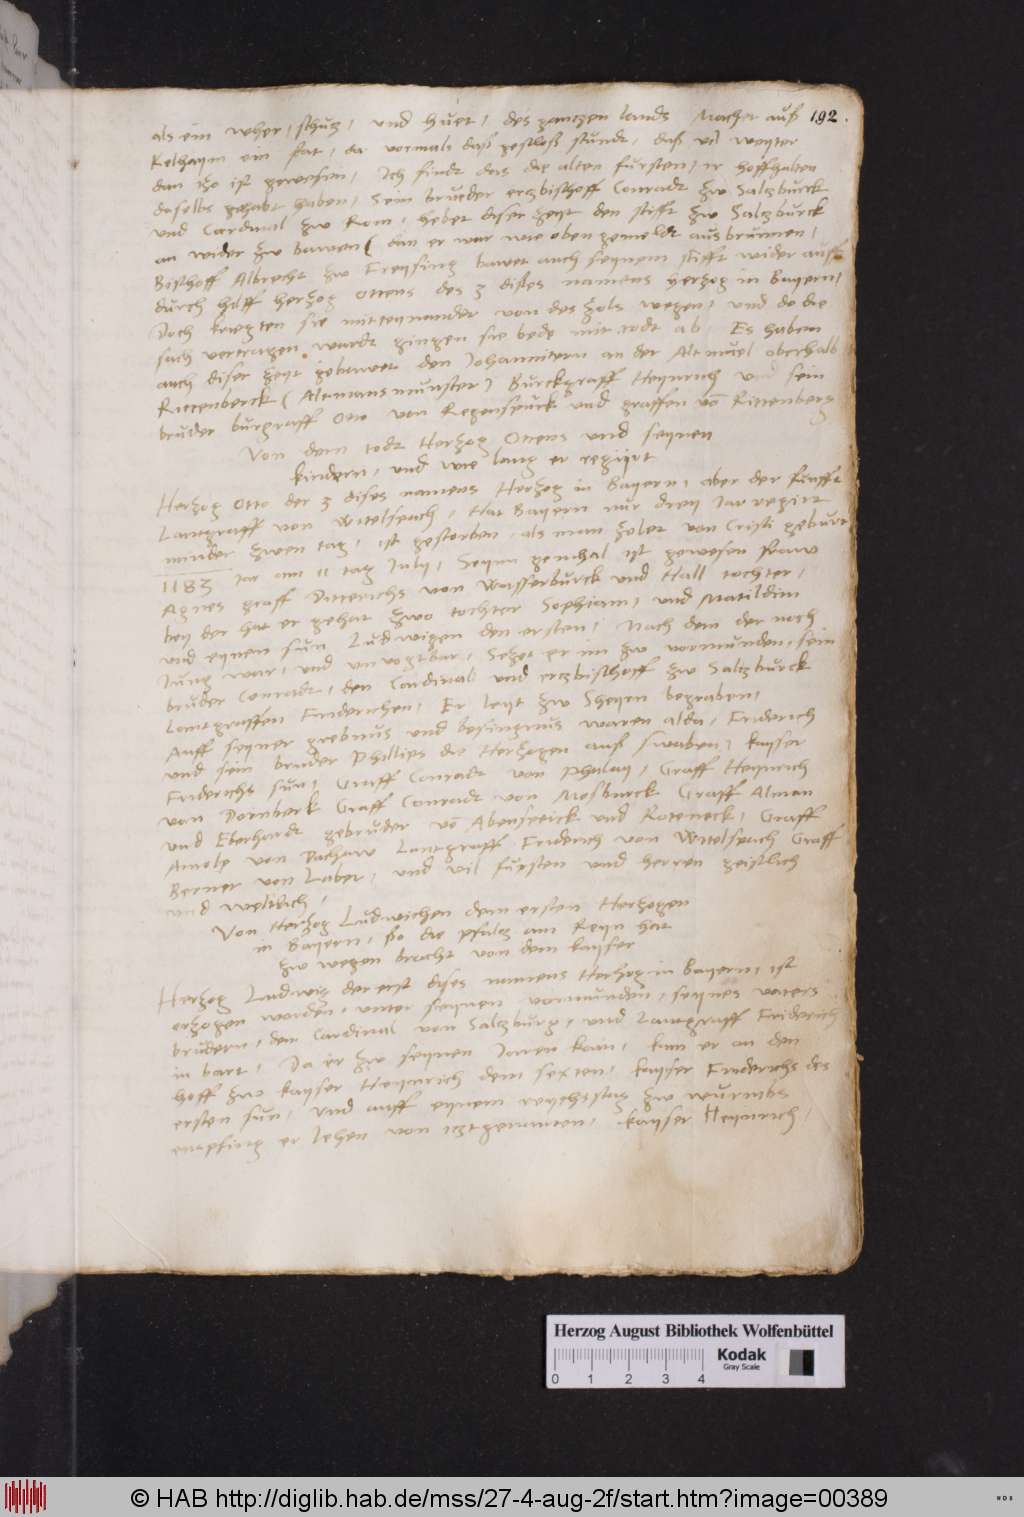 192.
als ein wher, schutz, und huet, des gantzen lands Machet auß
Kelhaym ein stat, da vormals das geschloß stundt, das vil weyter
dan itzo ist gewesen, Ich findt das die alten fursten, ir hoffhalten
doselbs gehabt haben, Sein bruder erzbischoff Conradt zw Saltzburck
und Cardinal zw Rom, hebet diser zeyt den stifft zw Saltzburck
an wider zw bawen (dan er war wie oben gemeldt ausbrunnen,
Bischoff Albrecht zw Freysing bawet auch seynem stifft wider auff
durch hilff herzog Ottens des 3 dises namens herzog in Bayern,
Doch kriegten sie mitteynander von des zols wegen, und do die
sach vertragen wardt gingen sie bede mit todt ab. Es haben
auch diser zeyt gebawet den Johannitern an der Altmuel oberhalb
Rietenberck (Altmansmunster) Burckgraff Heynrich und sein
bruder burgraff Otto von Regenspurck und graffen von Rittenberg
Von dem todt Herzog Ottens und seynen
kindern, und wie lang er regiirt
Herzog Otto der 3 dises namens Herzog in Bayern, aber der funfft
Lantgraff von Witelspach, Hat Bayern nur drey Jar regirt
minder zwen tag, ist gestorben, als man zelet von Cristi geburt
1183 Jar am 11 tag July, Seyn gemhal ist gewesen fraw
Agnes graff Ditterichs von Wasserburck und Hall tochter,
bey der hat er gehat zwo tochter Sophiam, und Matildim
und eynen sun Ludwigen den ersten, Nach dem der noch
Jung war, und unvogtbar, Setzet er im zw vormunden, sein
bruder Conradt, den Cardinal und erczbischoff zw Saltzburck
Lantgraffen Friderichen, Er leyt zw Sheyen begraben,
Auff seyner grebnus und besingnus waren alda, Friderich
und sein bruder Phillips die Herzogen auß swaben, kayser
Friderichs sun, Graff Conradt von Phalay, Graff Heynrich
von Dornberk Graff Conradt von Mosburck Graff Alman
und Eberhardt gebruder von Abensperck und Roteneck, Graff
Arnolp von Dachaw Lantgraff Friderich von Witelspach Graff
Berner von Laber, und vil fursten und herren geistlich
und weltlich,
Von Herzog Ludwichen dem ersten Herzogen
in Bayern, so die pfalz am Reyn hat
zw wegen bracht von dem kayser
Herzog Ludwig der erst dises namens Herzog in Bayern, ist
erzogen worden, unter seynen vormunden, seynes vaters
brudern, dem Cardinal von Saltzburg, und Lantgraff Friderich
im bart, Da er zw seynen Jaren kam, kum er an den
hoff zw kayser Heynrich dem sexten, kayser Friderichs des
ersten sun, und auff eynem reychstag zw wurmbs
empfing er lehen von itztgenannten, kayser Heynrich,
Herzog August Bibliothek Wolfenbüttel
Kodak
Gray Scale
0 1 2 3 4
© HAB http://diglib.hab.de/mss/27-4-aug-2f/start.htm?image=00389